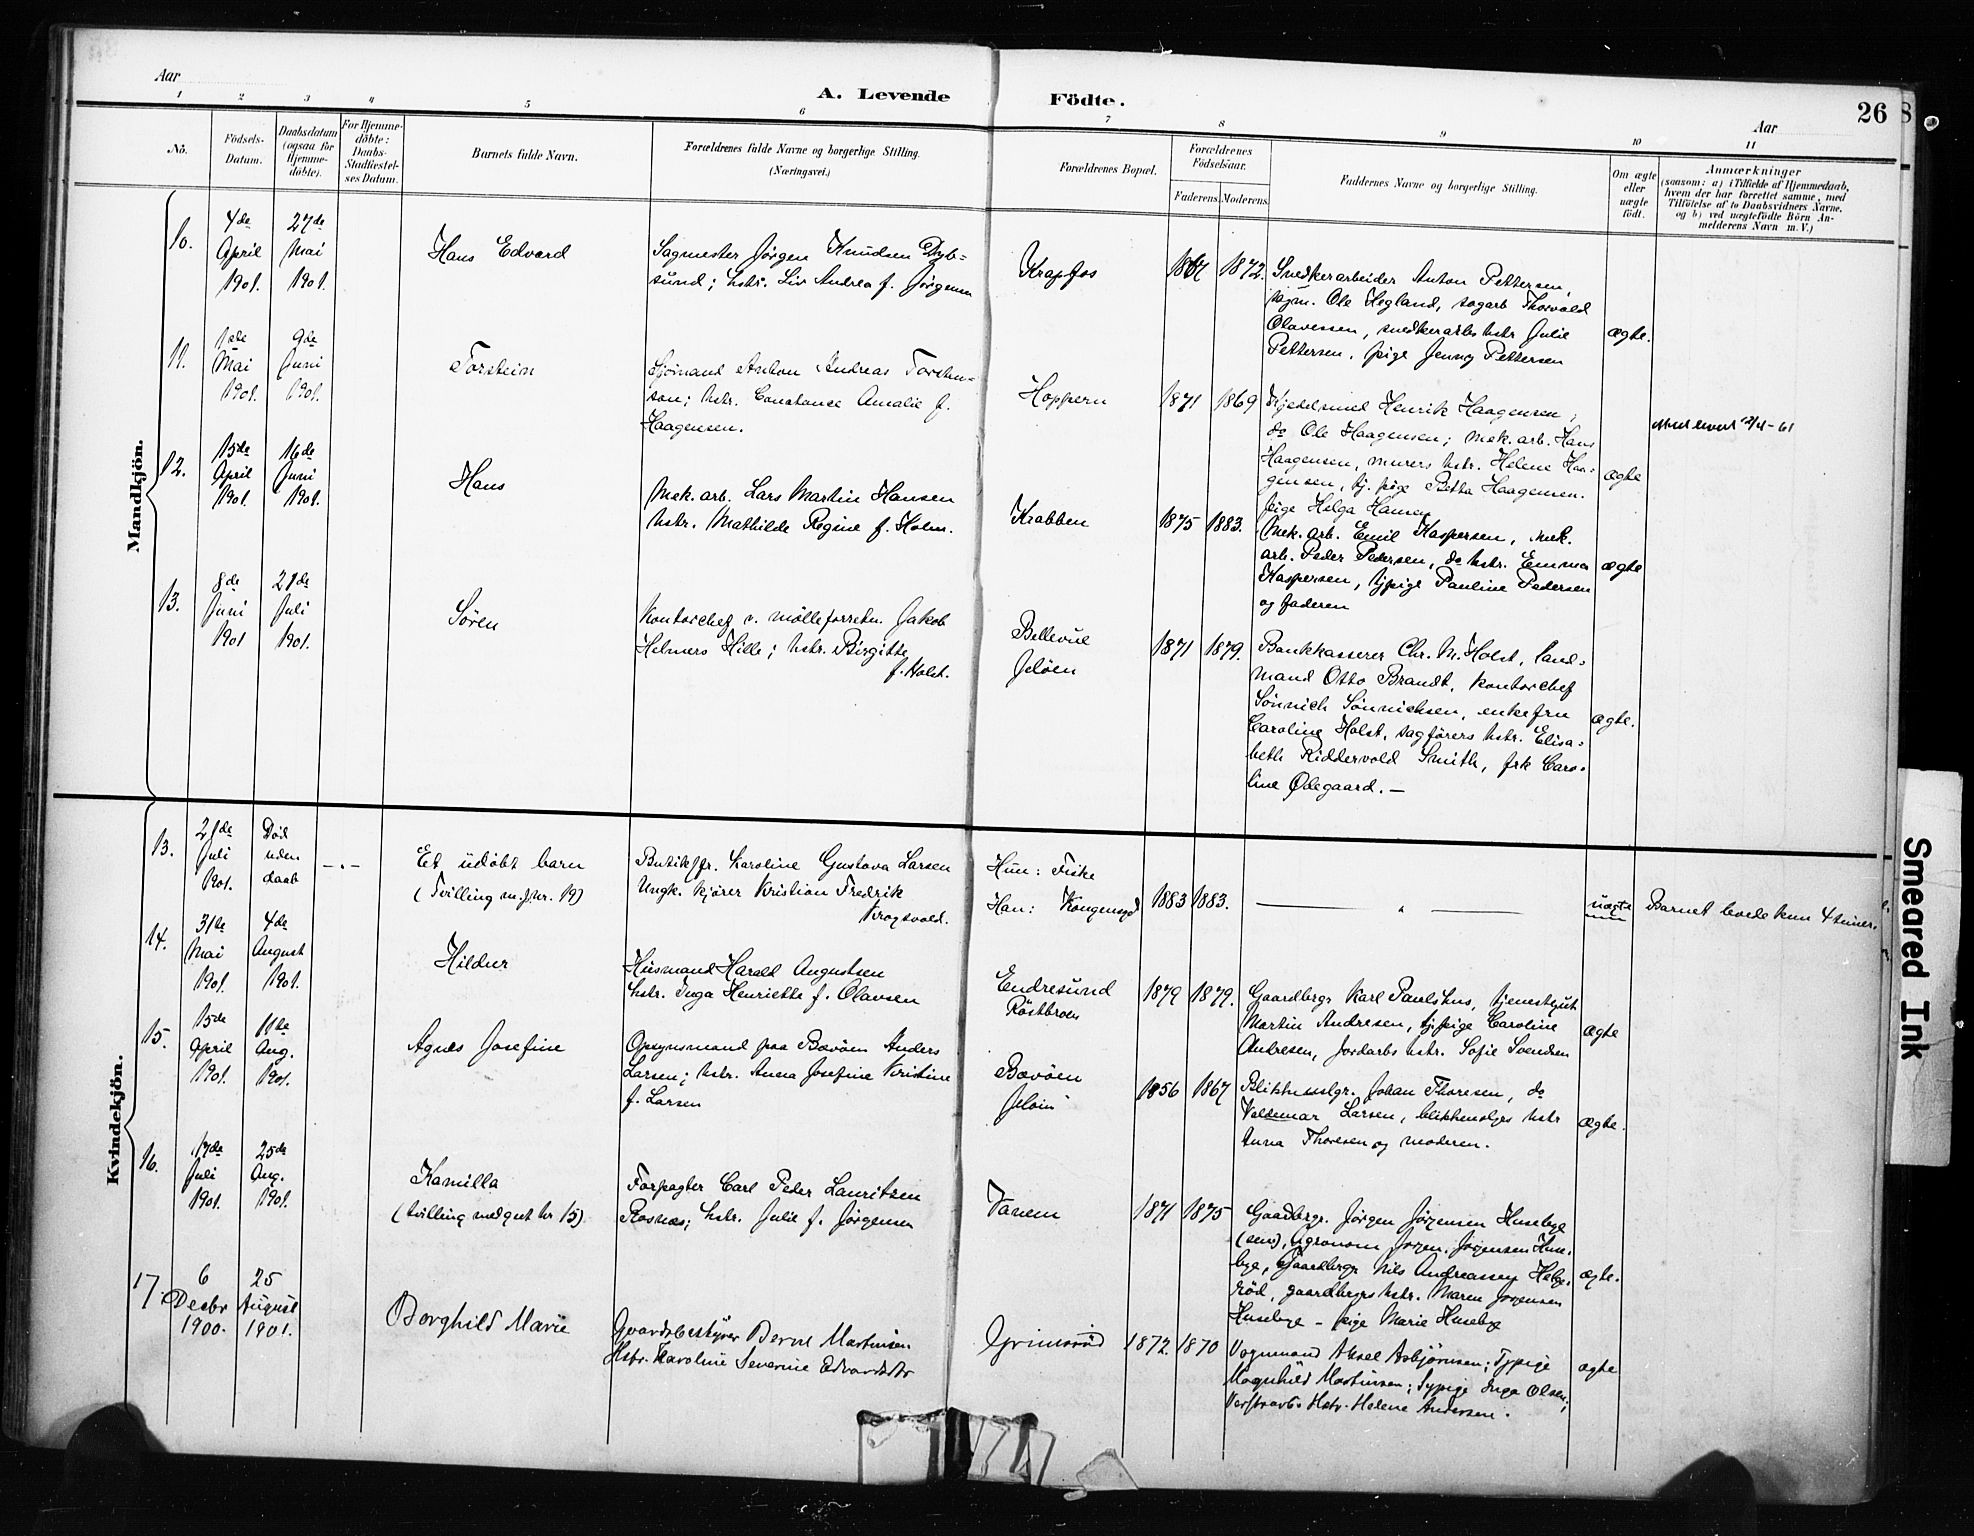 Aar
A. Levende
Födte.
Aar
26
8
1 2 3 4 5 6 7 8 9 10 11
No.
Födsels-
Datum.
Daabsdatum
(ogsaa for
Hjemme-
döbte).
For Hjemme-
döbte:
Daabs-
Stadfæstel-
ses Datum.
Barnets fulde Navn.
Forældrenes fulde Navne og borgerlige Stilling.
(Næringsvei.)
Forældrenes Bopæl.
Forældrenes
Födselsaar.
Faderens.
Moderens.
Faddernes Navne og borgerlige Stilling.
Om ægte
eller
uægte
födt.
Anmærkninger
(saasom: a) i Tilfælde af Hjemmedaab,
hvem der har forrettet samme, med
Tilföielse af to Daabsvidners Navne,
og b) ved uægtefödte Börn An-
melderens Navn m. V.)
Mandkjön.
10.
4de
April
1901.
27de
Mai
1901.
Hans Edvard
Sagmester Jörgen Knudsen Dyb-
sund; hstr. Liv Andrea f. Jörgensen
Krapfos
1867
1872.
Snedkerarbeider Anton Pettersen,
sagm. Ole Hegland, sagarb Thorvald
Olavessen, snedkerarbs hstr Julie
Pettersen, pige Jenny Pettersen
ægte.
11.
1ste
Mai
1901.
9de
Juni
1901.
Torstein
Sjömand Anton Andreas Torsten-
son; hstr. Constance Amalie f.
Haagensen.
Hoppern
1871
1869
Kjedelsmed Henrik Haagensen;
do Ole Haagensen; mek. arb. Hans
Haagensen, murers hstr. Helene Haa-
gensen, tj. pige Betha Haagensen.
pige Helga Hansen
ægte
12.
15de
April
1901.
16de
Juni
1901.
Hans
Mek. arb. Lars Martin Hansen
hstr. Mathilde Regine f. Holm.
Krabben
1875
1883.
Mek. arb. Emil Kaspersen, mek.
arb. Peder Pedersen, do hstr. Emma
Kaspersen, tjpige Pauline Pedersen
og faderen
ægte
13.
8de
Juni
1901
21de
Juli
1901.
Sören
Kontorchef v. mölleforretn. Jakob
Helmers Hille; hstr. Birgitte
f. Holst.
Bellevue
Jelöen
1871
1879.
Bankkasserer Chr. M. Holst, land-
mand Otto Brandt, kontorchef
Sönnich Sönnichsen, enkefru
Caroline Holst, sagförers hstr. Elisa-
beth Riddervold Smith, frk Caro-
line Ödegaard. —
ægte.
Kvindekjön.
13.
21de
Juli
1901.
Död
uden
daab
— " —
Et udöbt barn
(Tvilling m. J. nr. 19)
Butikfr. Karoline Gustava Larsen
Ungk. kjører Kristian Fredrik
Krogsvold.
Hun: Fiske
Han: Kongensgd
1883
1883.
— " —
uægte
Barnet levede kun 4 timer.
14.
31te
Mai
1901.
4de
August
1901.
Hildur
Husmand Harald Augustsen
hstr. Inga Henriette f. Olavsen
Endresund
1879
1879.
Gaardbergr Karl Paulshus, tjenestgut
Martin Andresen, tjpige Caroline
Andresen, Jordarbs hstr. Sofie Svendsen
ægte
15.
15de
April
1901.
11te
Aug.
1901.
Agnes Josefine
Opsynsmand paa Bævöen Anders
Larsen; hstr. Anna Josefine Kristine
f. Larsen
Bævöen
Jelöen
1856
1867
Blikkenslgr. Johan Thoresen, do
Valdemar Larsen, blikkenslgrs hstr
Anna Thoresen og moderen.
ægte.
16.
17de
Juli
1901.
25de
Aug.
1901.
Kamilla
(tvilling med gut nr 15)
Forpagter Carl Peder Lauritsen
Rosnæs; hstr. Julie f. Jörgensen
Vanem
1871
1875
Gaardbergr. Jörgen Jörgensen Husebye
(sen), Agronom Jörgen Jörgensen Huse-
bye, Gaardbergr Nils Andreassen Helge-
röd, gaardbrgrs hstr. Maren Jörgensen
Husebye – pige Marie Husebye
ægte.
17.
6
Decbr
1900.
25
August
1901.
Borghild Marie
Gaardsbestyrer Bernt Martinsen
Hstr. Karoline Severine Edvardsdtr
Grimsröd
1872.
1870
Vognmand Aksel Asbjörnsen; Tjpige
Magnhild Martinsen; Sypige Inga Olsen;
Hstr. Helene Andersen.
ægte
Smeared Ink